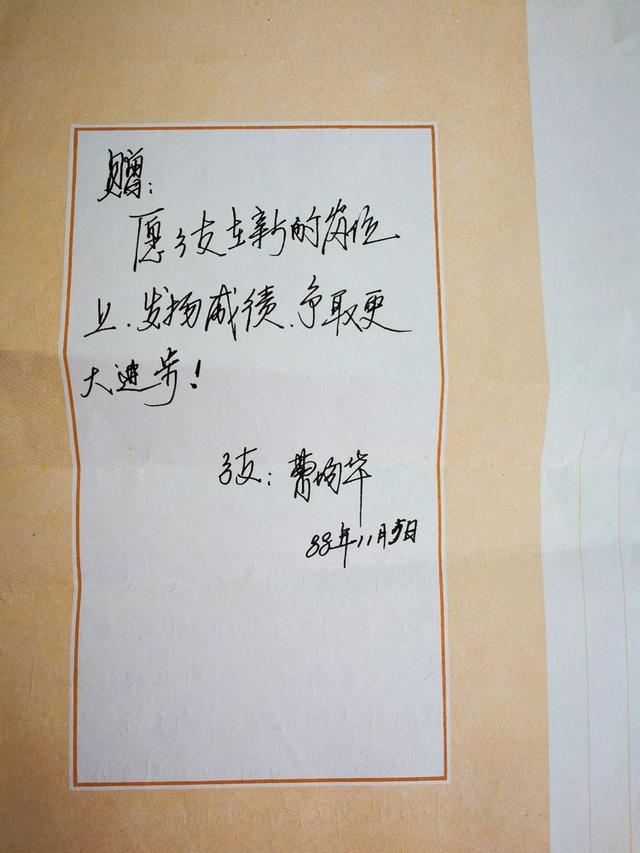 赠:
愿好友在新的岗位
上.发扬成绩.争取更
大进步!
好友:曹均华
88年11月5日